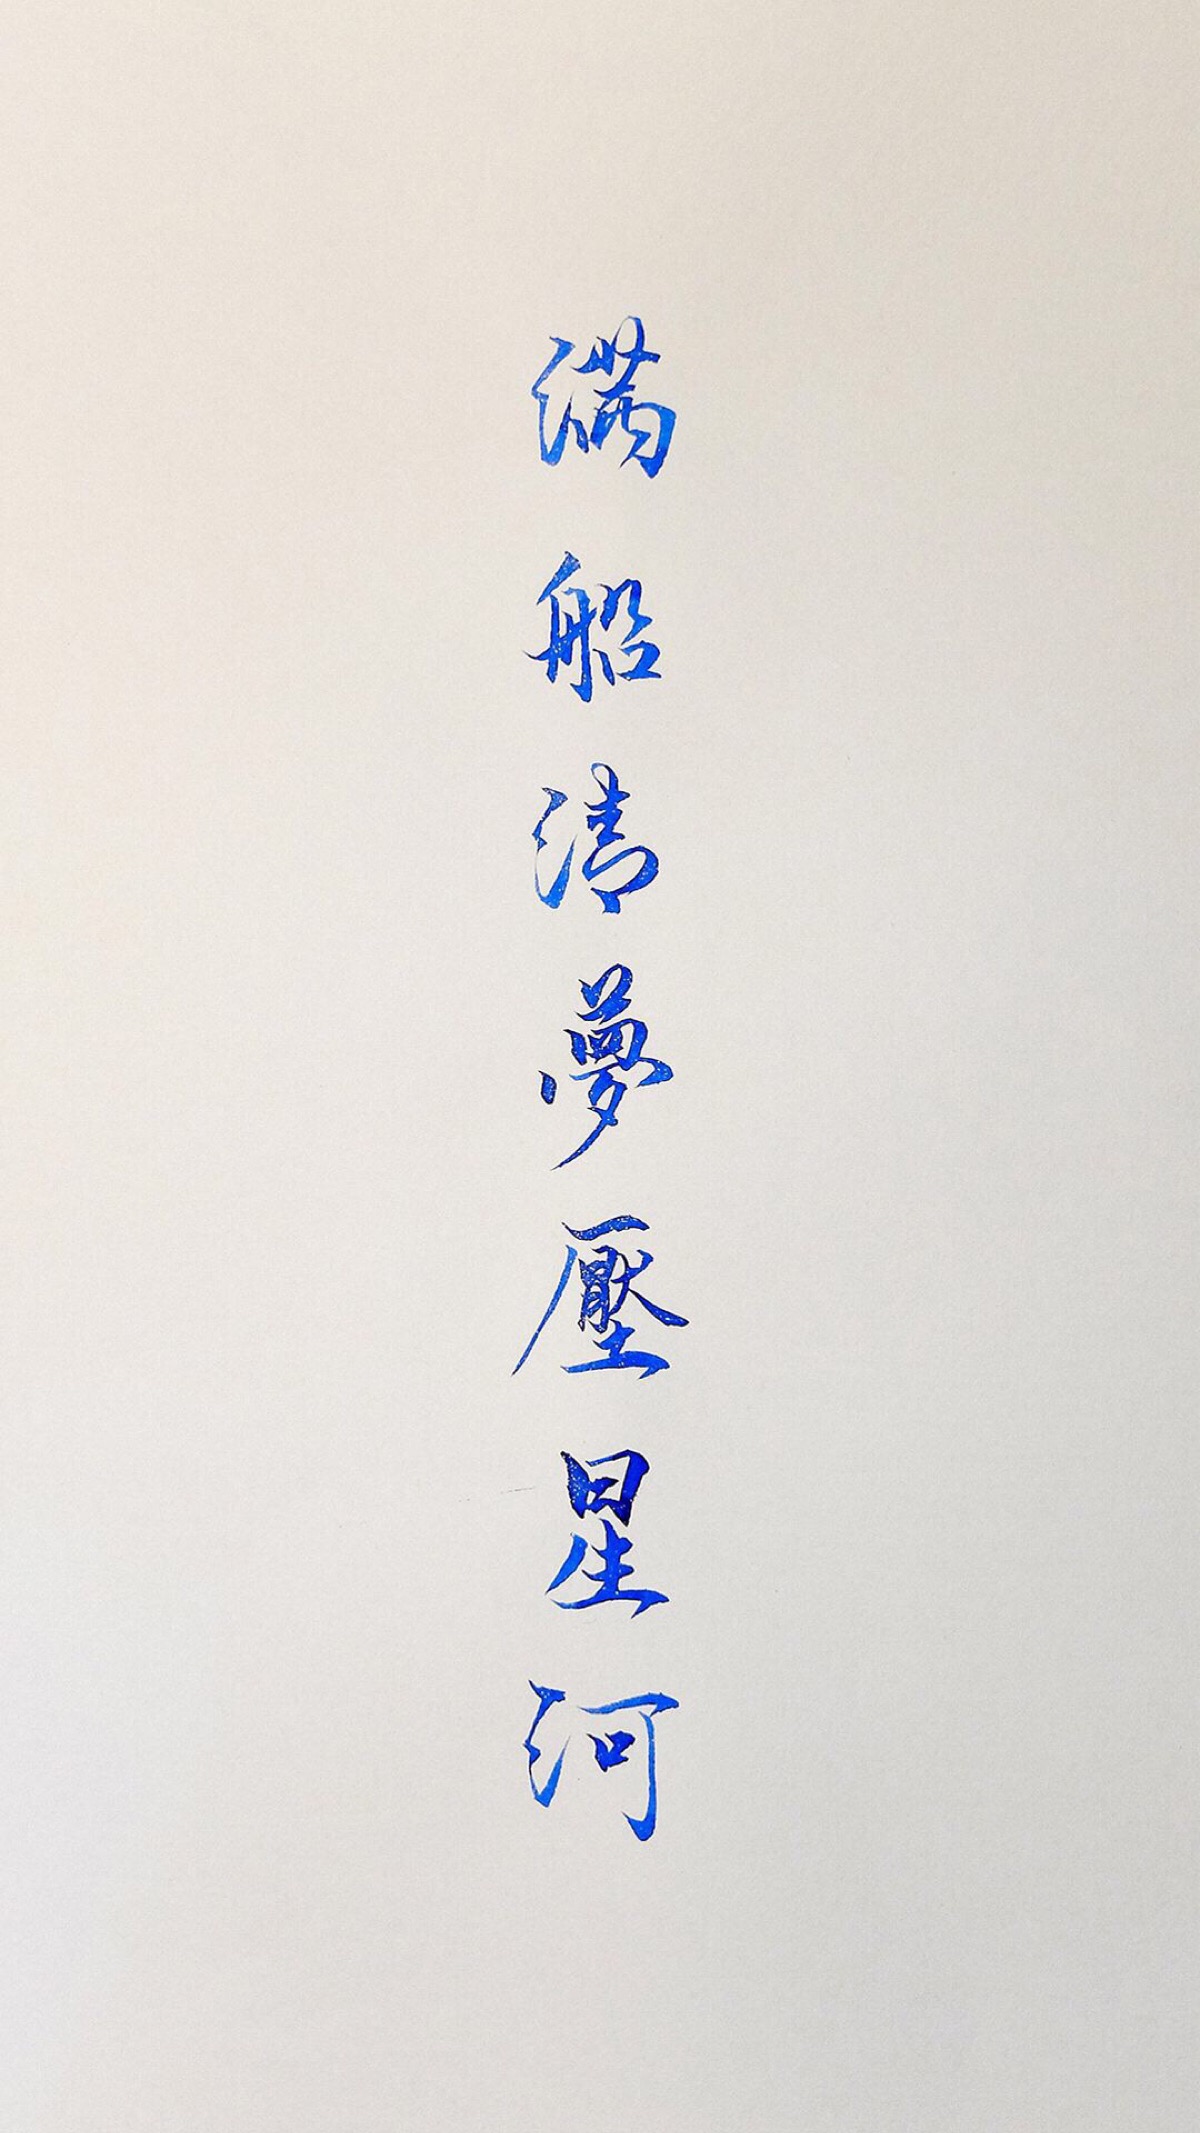 満船清夢壓星河